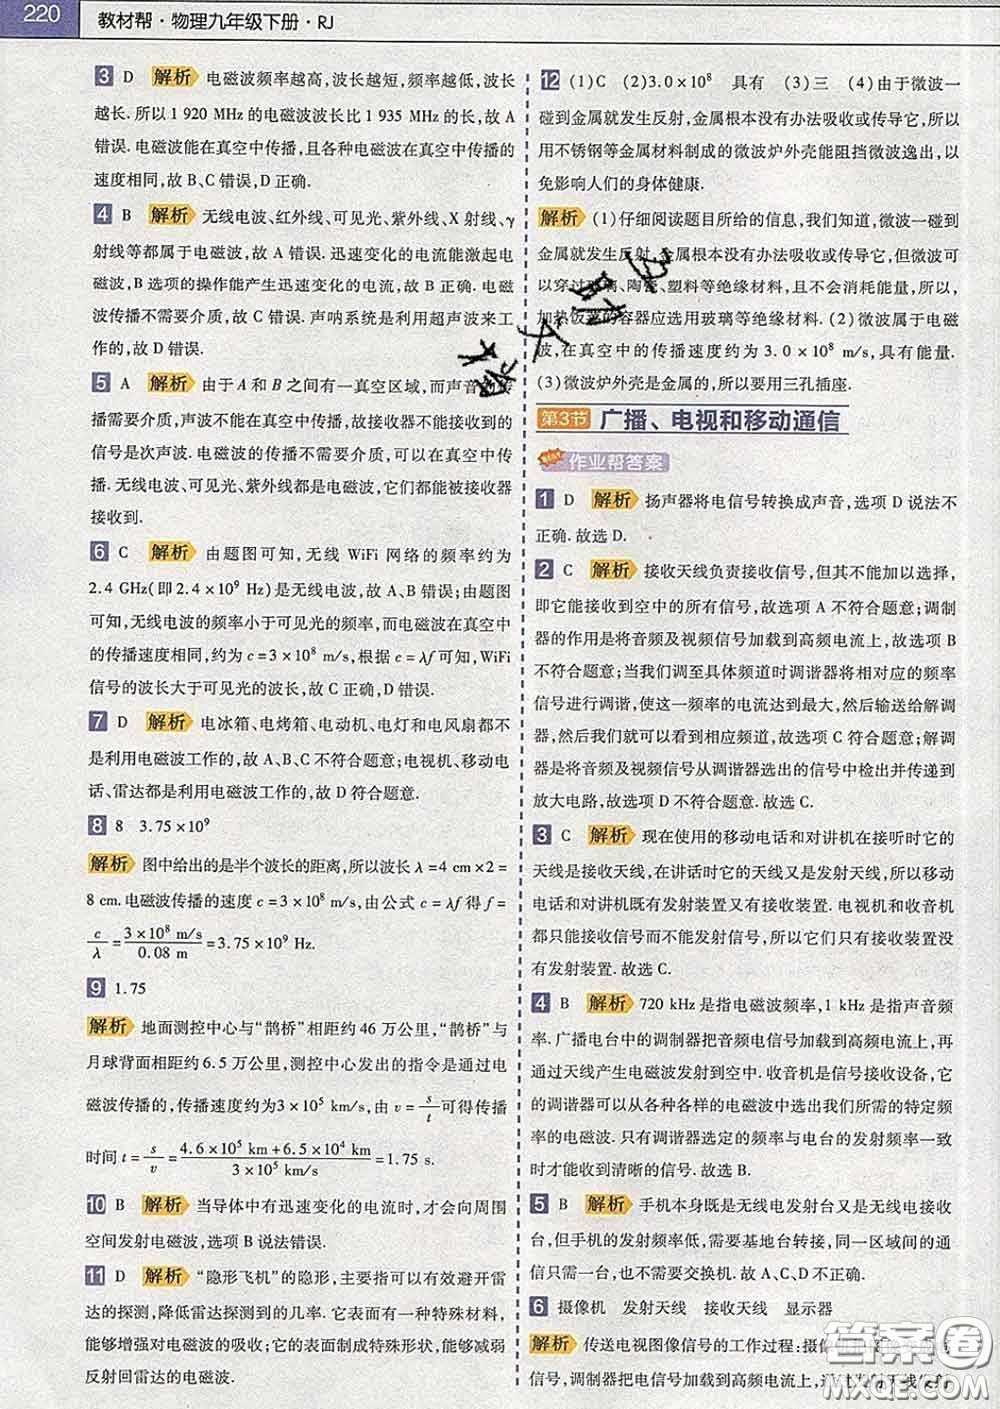 220 教材帮·物理九年级下册·RJ
3 D 解析 电磁波频率越高,波长越短,频率越低,波长
越长.所以1 920 MHz的电磁波波长比1 935 MHz的长,故A
错误.电磁波能在真空中传播,且各种电磁波在真空中传播的
速度相同,故B、C错误,D正确.
4 B 解析 无线电波、红外线、可见光、紫外线、X射线、γ
射线等都属于电磁波,故A错误.迅速变化的电流能激起电
磁波,B选项的操作能产生迅速变化的电流,故B正确.电
磁波传播不需要介质,故C错误.声呐系统是利用超声波来工
作的,故D错误.
5 A 解析 由于A和B之间有一真空区域,而声音的传
播需要介质,声波不能在真空中传播,故接收器不能接收到的
信号是次声波.电磁波的传播不需要介质,可以在真空中传
播.无线电波、可见光、紫外线都是电磁波,它们能被接收器
接收到.
6 C 解析 由题图可知,无线WiFi网络的频率约为
2.4 GHz(即2.4×10⁹ Hz)是无线电波,故A、B错误;由题图
可知,无线电波的频率小于可见光的频率,而电磁波在真空中
的传播速度相同,约为c=3×10⁸ m/s,根据c=λf可知,WiFi
信号的波长大于可见光的波长,故C正确,D错误.
7 D 解析 电冰箱、电烤箱、电动机、电灯和电风扇都不
是利用电磁波工作的,故A、B、C不符合题意;电视机、移动电
话、雷达都是利用电磁波工作的,故D符合题意.
8 8 3.75×10⁹
解析 图中给出的是半个波长的距离,所以波长λ=4 cm×2=
8 cm.电磁波传播的速度c=3×10⁸ m/s,由公式c=λf得f=
c/λ=3×10⁸ m/s/0.08 m=3.75×10⁹ Hz.
9 1.75
解析 地面测控中心与“鹊桥”相距约46万公里,“鹊桥”与
月球背面相距约6.5万公里,测控中心发出的指令是通过电
磁波传播的,传播速度约为3×10⁵ km/s,由v=s/t可得传播
时间t=s/v=4.6×10⁵ km+6.5×10⁴ km/3×10⁵ km/s=1.75 s.
10 B 解析 当导体中有迅速变化的电流时,才会向周围
空间发射电磁波,选项B说法错误.
11 D 解析 “隐形飞机”的隐形,主要指可以有效避开雷
达的探测,降低雷达探测到的几率.它表面有一种特殊材料,
能够增强对电磁波的吸收;它的表面制成特殊形状,能够减弱
反射回雷达的电磁波.
12 (1)C (2)3.0×10⁸ 具有 (3)三 (4)由于微波一
碰到金属就发生反射,金属根本没有办法吸收或传导它,所以
用不锈钢等金属材料制成的微波炉外壳能阻挡微波逸出,以
免影响人们的身体健康.
解析 (1)仔细阅读题目所给的信息,我们知道,微波一碰到
金属就发生反射,金属根本没有办法吸收或传导它;微波可
以穿过玻璃、陶瓷、塑料等绝缘材料,且不会消耗能量.所以,
加热饭菜的容器应选用玻璃等绝缘材料.(2)微波属于电磁
波,在真空中的传播速度约为3.0×10⁸ m/s,具有能量.
(3)微波炉外壳是金属的,所以要用三孔插座.
第3节 广播、电视和移动通信
作业帮答案
1 D 解析 扬声器将电信号转换成声音,选项D说法不
正确.故选D.
2 C 解析 接收天线负责接收信号,但其不能加以选择,
即它能接收到空中的所有信号,故选项A不符合题意;调制
器的作用是将音频及视频信号加载到高频电流上,故选项B
不符合题意;当我们调至具体频道时调谐器将相对应的频率
信号进行调谐,使这一频率的电流达到最大,然后输送给解调
器,然后我们就可以看到相应频道,故选项C符合题意;解调
器是将音频及视频信号从调谐器选出的信号中检出并传递到
放大电路,故选项D不符合题意.故选C.
3 C 解析 现在使用的移动电话和对讲机在接听时它的
天线是接收天线,在讲话时它的天线又是发射天线,所以移动
电话和对讲机既有发射装置又有接收装置.电视机和收音机
都只能接收信号而不能发射信号,所以它们只有接收装置没
有发射装置.故选C.
4 B 解析 720 kHz是指电磁波频率,1 kHz是指声音频
率.广播电台中的调制器把音频电信号加载到高频电流上,再
通过天线产生电磁波发射到空中.收音机是信号接收设备,它
的调谐器可以从各种各样的电磁波中选出我们所需的特定频
率的电磁波.只有调谐器选定的频率与电台的发射频率一致
时才能收到清晰的信号.故选B.
5 B 解析 手机本身既是无线电发射台又是无线电接收
台,但手机的发射频率低,需要基地台转接,同一区域间的通
信只需一台,也不需要交换机.故A、C、D不正确.
6 摄像机 发射天线 接收天线 显示器
解析 传送电视图像信号的工作过程:摄像
信号,调制器把电信号加载到高频电流上,通过发射天线
作业帮
答案圈